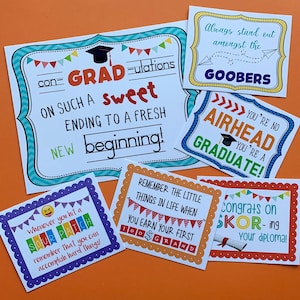 con- GRAD -ulations
ON SUCH A sweet
ENDING TO A FRESH
NEW beginning!
Always stand out
amongst the
GOOBERS
YOU'RE NO
AIRHEAD
YOU'RE A
GRADUATE!
Whenever you hit a
SOUR PATCH
remember that you can
accomplish hard things!
REMEMBER THE LITTLE
THINGS IN LIFE WHEN
YOU EARN YOUR FIRST
100 GRAND
Congrats on
SKOR-ing
your diploma!